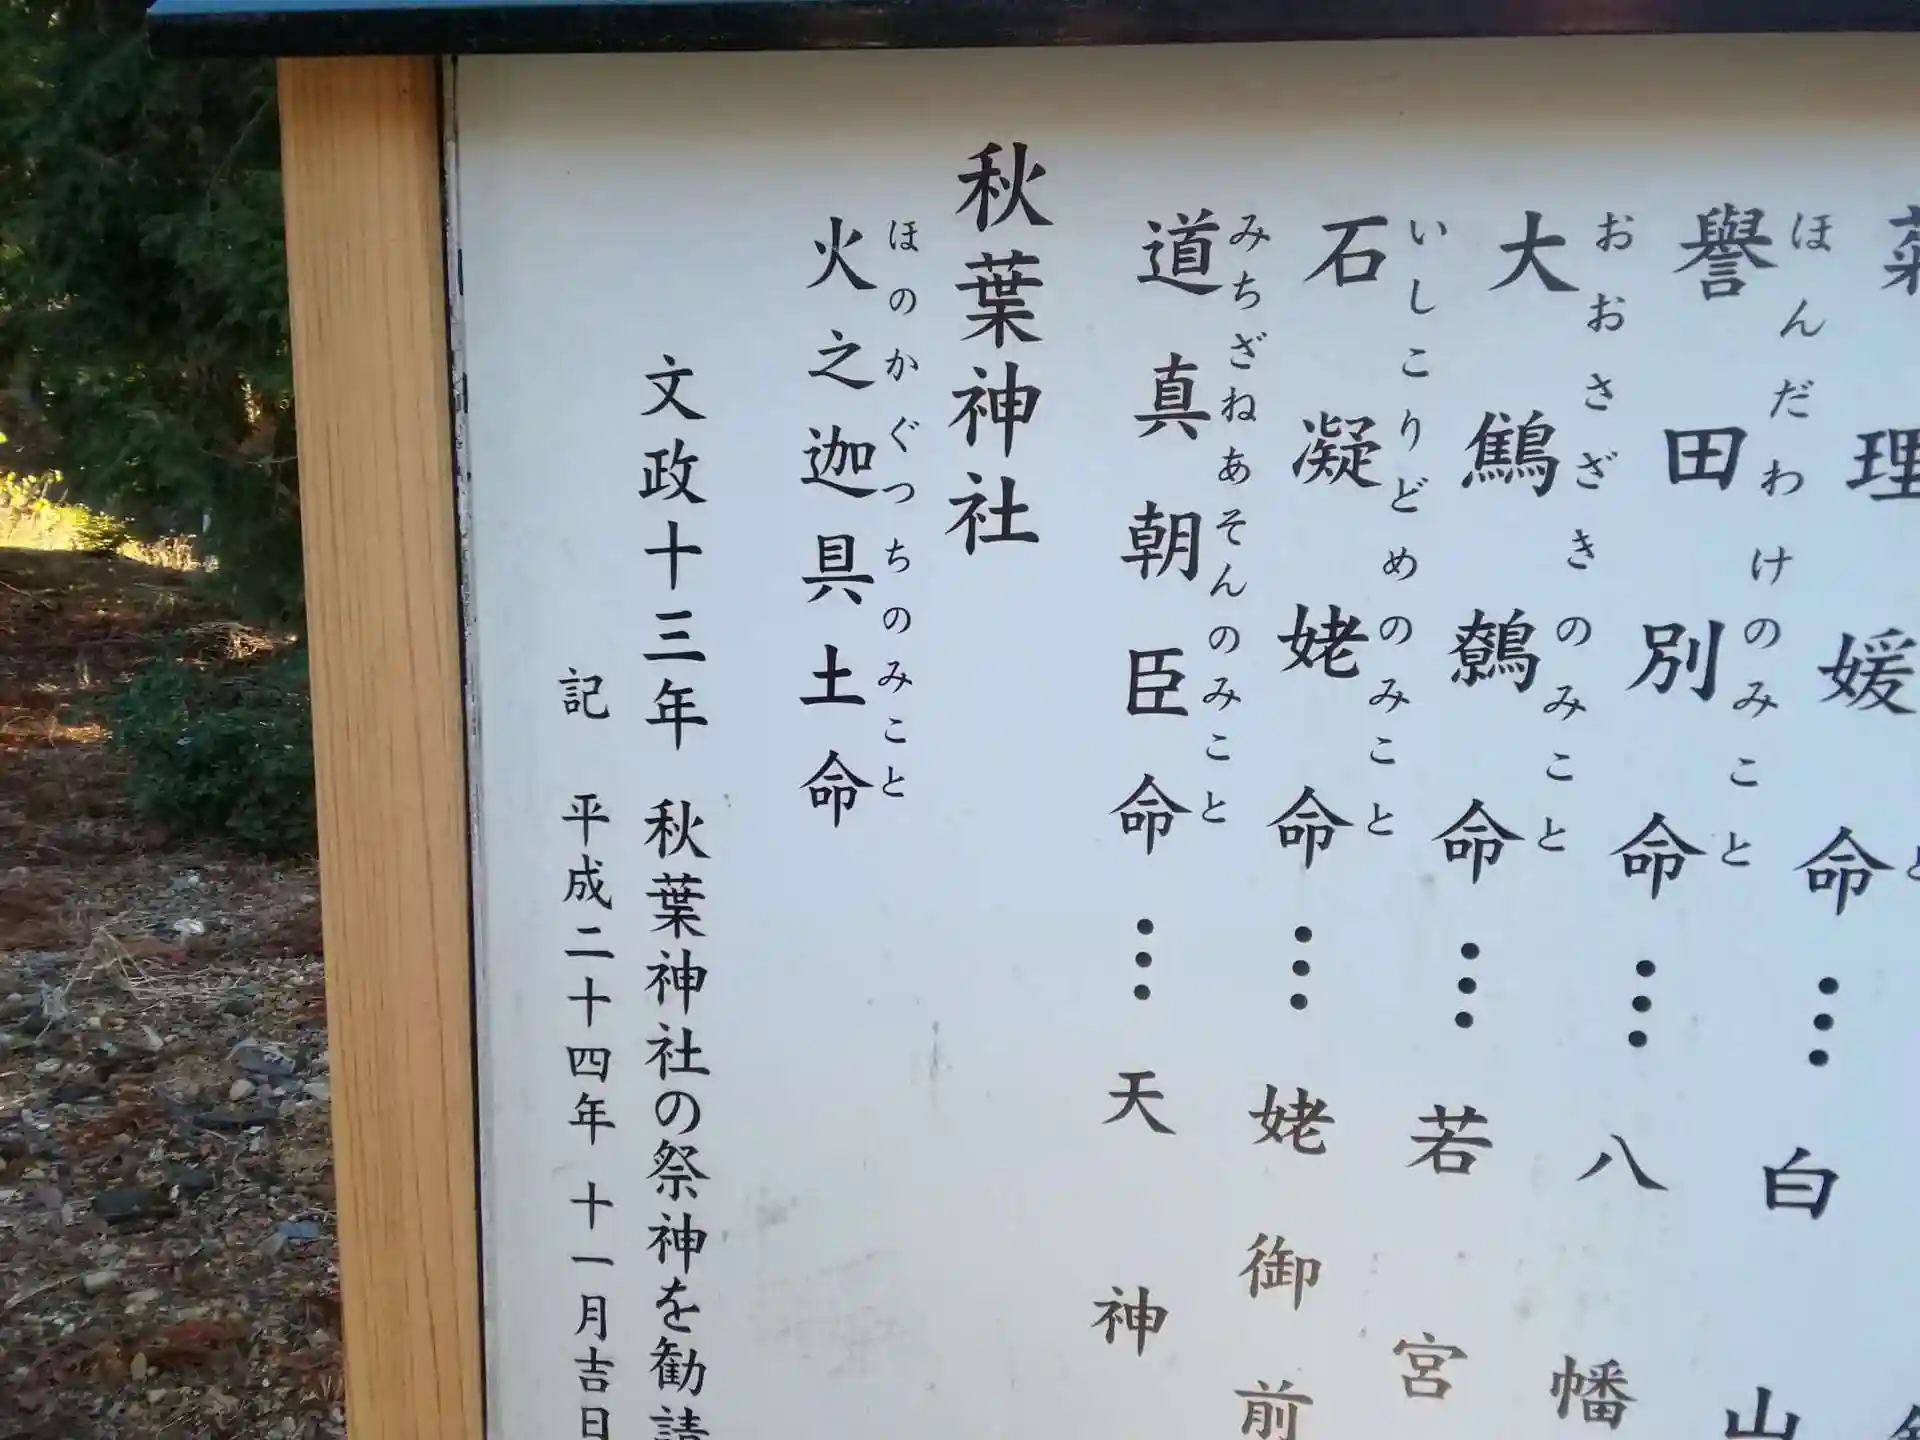 菊理媛命…白山
ほんだわけのみこと
譽田別命…八幡
おおさざきのみこと
大鷦鷯命…若宮
いしこりどめのみこと
石凝姥命…姥御前
みちざねあそんのみこと
道真朝臣命…天神
秋葉神社
ほのかぐつちのみこと
火之迦具土命
文政十三年 秋葉神社の祭神を勧請
記 平成二十四年 十一月吉日